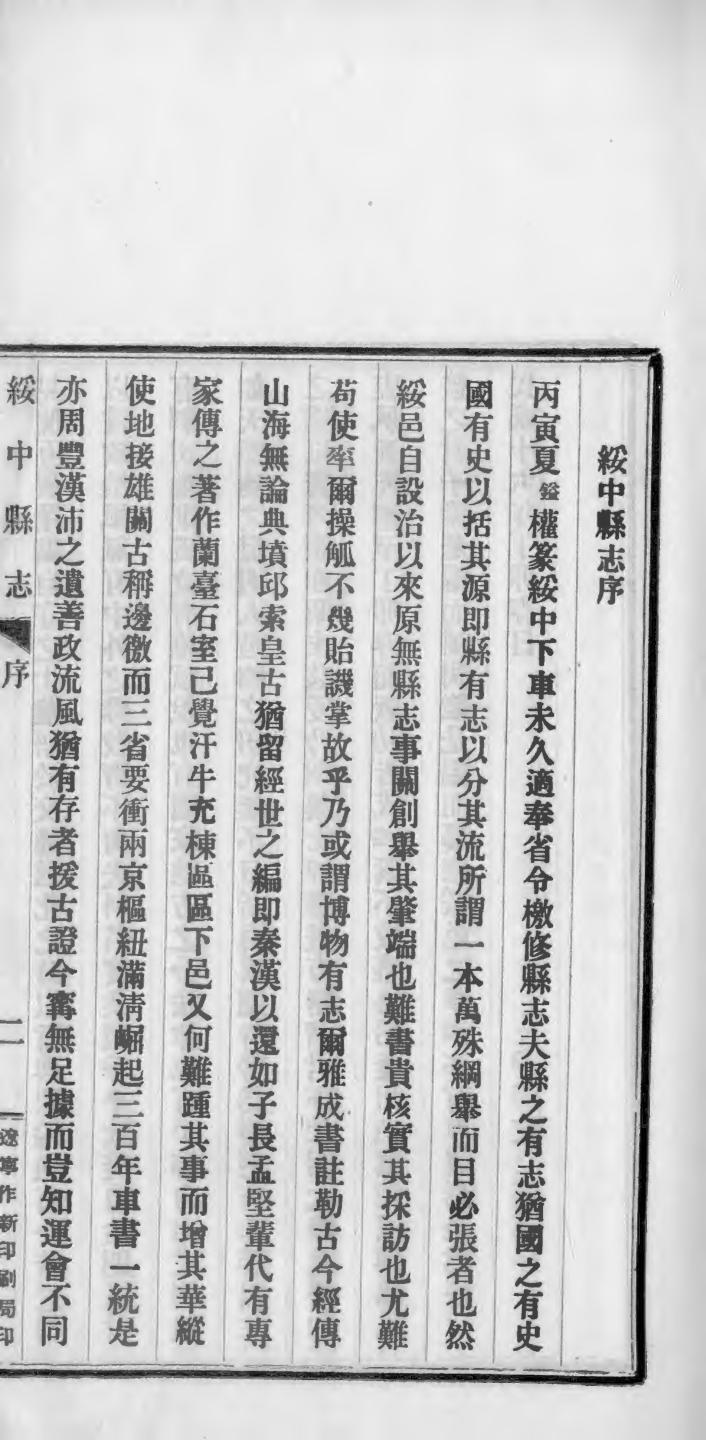 綏中縣志序
丙寅夏鎰權篆綏中下車未久適奉省令檄修縣志夫縣之有志猶國之有史
國有史以括其源即縣有志以分其流所謂一本萬殊綱舉而目必張者也然
綏邑自設治以來原無縣志事關創舉其肇端也難書貴核實其採訪也尤難
苟使率爾操觚不幾貽譏掌故乎乃或謂博物有志爾雅成書註勒古今經傳
山海無論典墳邱索皇古猶留經世之編即秦漢以還如子長孟堅輩代有專
家傳之著作蘭臺石室已覺汗牛充棟區區下邑又何難踵其事而增其華縱
使地接雄關古稱邊徼而三省要衝兩京樞紐滿清崛起三百年車書一統是
亦周豐漢沛之遺善政流風猶有存者援古證今寗無足據而豈知運會不同
綏中縣志 序 二 遼寧作新印刷局印